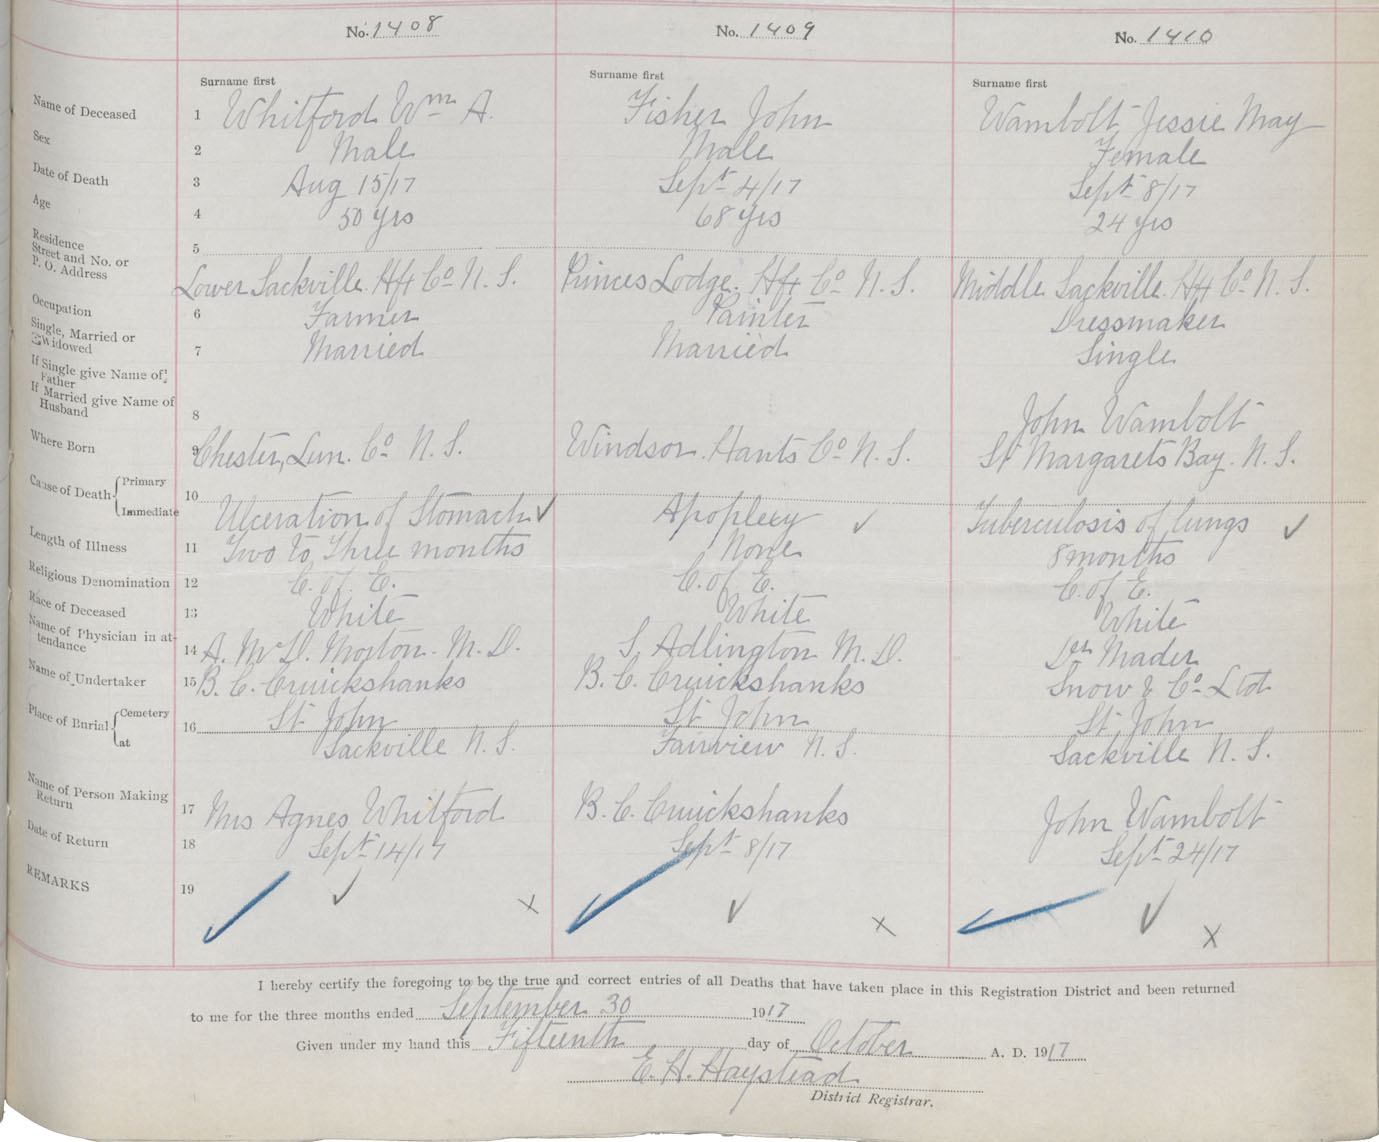 No. 1408 No. 1409 No. 1410
Surname first Surname first Surname first
Name of Deceased 1 Whitford Wm A. Fisher John Wambolt, Jessie May
Sex 2 Male Male Female
Date of Death 3 Aug 15/17 Sept 4/17 Sept 8/17
Age 4 50 yrs 68 yrs 24 yrs
Residence
Street and No. or
P. O. Address 5 Lower Sackville. Hfx Co N. S. Princes Lodge. Hfx Co N. S. Middle Sackville. Hfx Co N. S.
Occupation 6 Farmer Painter Dressmaker
Single, Married or
Widowed 7 Married Married Single
If Single give Name of
Father
If Married give Name of
Husband 8 John Wambolt
Where Born 9 Chester, Lun. Co N. S. Windsor. Hants Co N. S. St Margarets Bay. N. S.
Cause of Death Primary
Immediate 10 Ulceration of Stomach ✓ Apoplexy ✓ Tuberculosis of lungs ✓
Length of Illness 11 Two to Three months None 8 months
Religious Denomination 12 C. of E. C. of E. C. of E.
Race of Deceased 13 White White White
Name of Physician in at-
tendance 14 A. McD. Morton. M. D. S. Adlington M. D. Dr Mader
Name of Undertaker 15 B. C. Cruickshanks B. C. Cruickshanks Snow & Co Ltd
Place of Burial Cemetery 16 St John St John St John
at Sackville N. S. Fairview N. S. Sackville N. S.
Name of Person Making
Return 17 Mrs Agnes Whitford B. C. Cruickshanks John Wambolt
Date of Return 18 Sept 14/17 Sept 8/17 Sept 24/17
REMARKS 19 ✓ ✓ x ✓ ✓ x ✓ ✓ x
I hereby certify the foregoing to be the true and correct entries of all Deaths that have taken place in this Registration District and been returned
to me for the three months ended September 30 1917
Given under my hand this Fifteenth day of October A. D. 1917
E. H. Haystead
District Registrar.